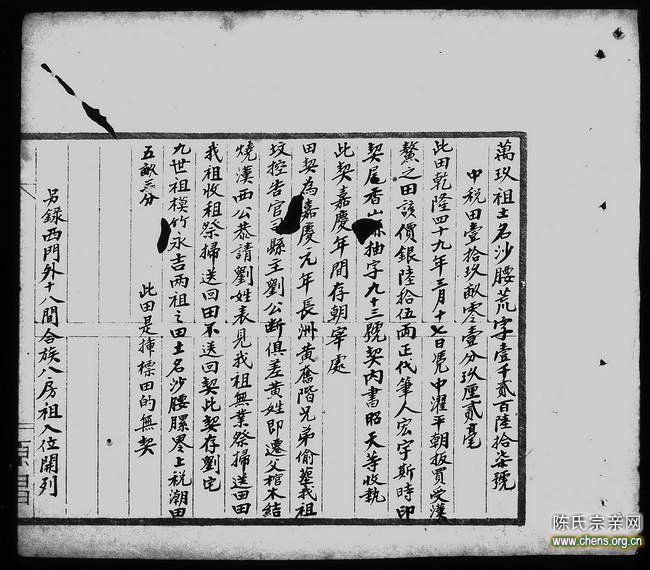 萬玖祖土名沙腰荒字壹千貳百陸拾柒號
中稅田壹拾玖畝零壹分玖厘貳毫
此田乾隆四十九年三月十七日凴中濯平朝拔買受漢
鰲之田該價銀陸拾伍両正代筆人宏宇斯時印
契尾香山縣抽字九十三號契内書昭天等收執
此契嘉慶年間存朝宰處
田契為嘉慶元年長洲黃奮階兄弟偷塟我祖
坟控告官司縣主劉公斷俱差黃姓即遷父棺木結
燒漢西公恭請劉姓表見我祖無業祭掃送回田
我祖收租祭掃送回田不送回契此契存劉宅
九世祖模竹永吉兩祖之田土名沙腰腘畧上稅潮田
五畝三分
此田是揷標田的無契
另錄西門外十八間合族八房祖入位開列
陈氏宗亲网
www.chens.org.cn